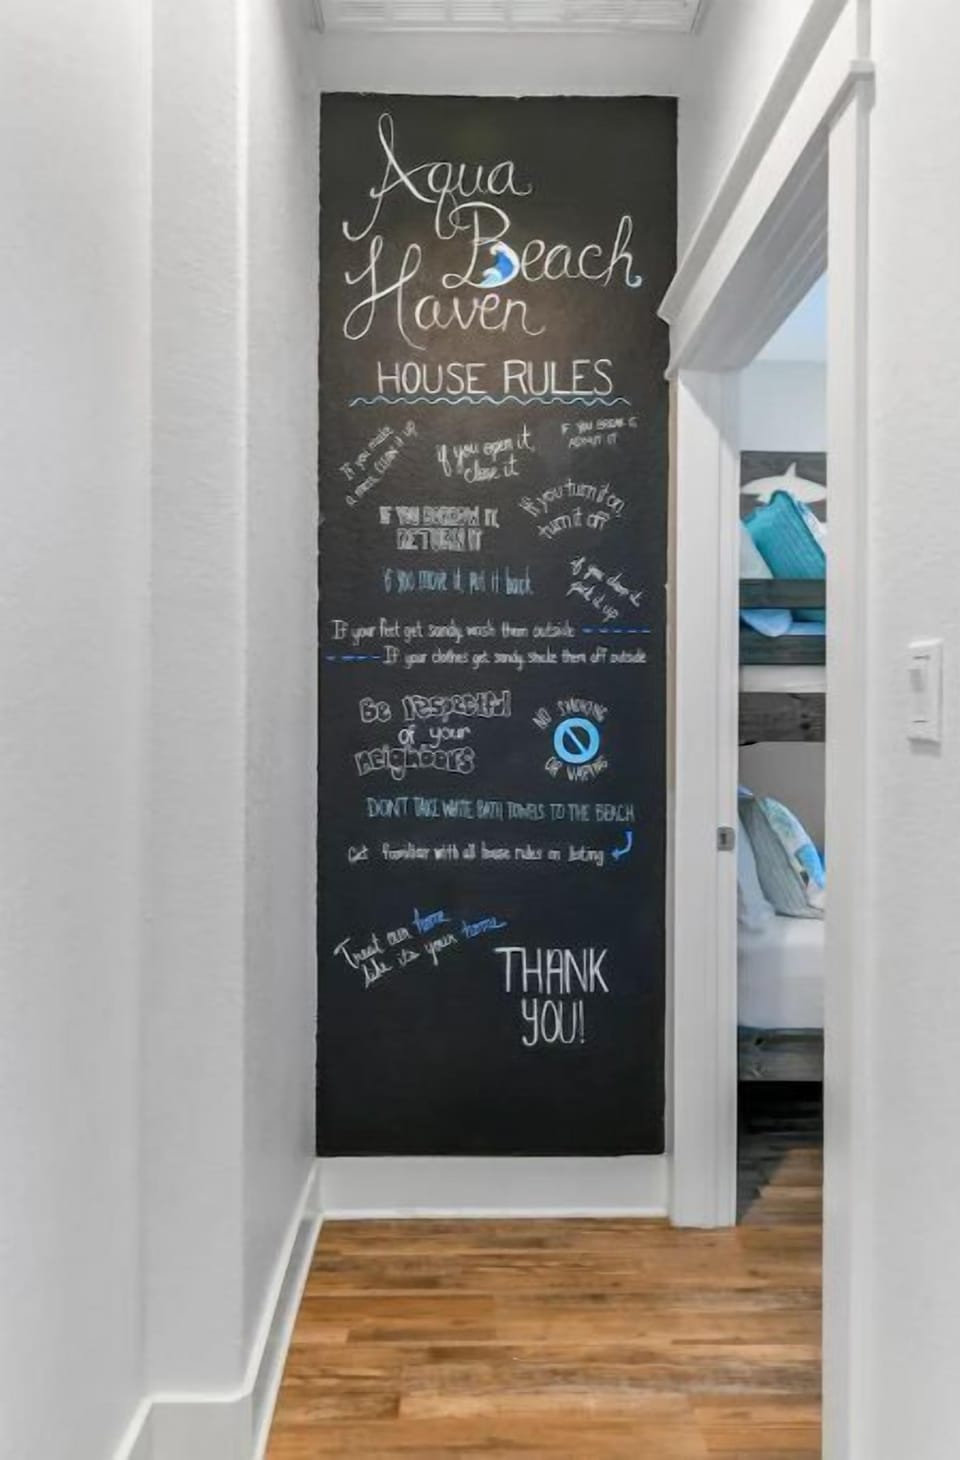 Aqua
Beach
Haven
HOUSE RULES
If you make
a mess, CLEAN it up
if you open it,
close it
IF YOU BREAK IT,
ADMIT IT
IF YOU BORROW IT,
RETURN IT
if you turn it on,
turn it off
if you move it, put it back
if you drop it,
pick it up
If your feet get sandy, wash them outside
If your clothes get sandy, shake them off outside
Be respectful
of your
neighbors
NO SMOKING
OR VAPING
DON'T TAKE WHITE BATH TOWELS TO THE BEACH
Get familiar with all house rules on listing
Treat our home
like it's your home
THANK
YOU!